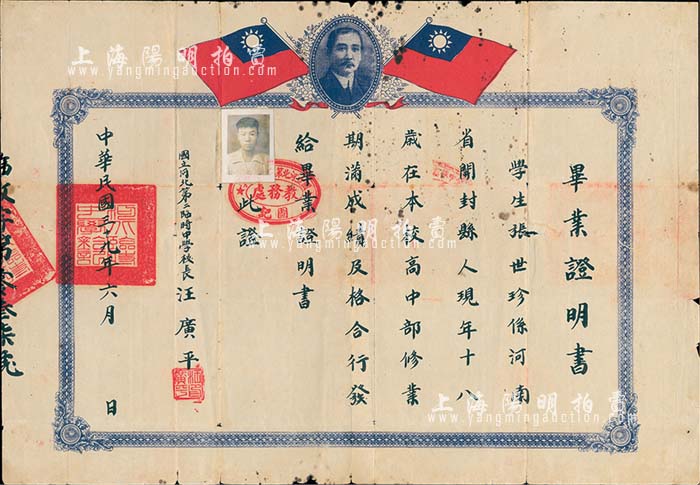 畢業證明書
學生張世珍係河南
省開封縣人現年十八
歲在本校高中部修業
期滿成績及格合行發
給畢業證明書
此證
國立河北第二臨時中學校長汪廣平
中華民國三十九年六月 日
教務處
上海陽明拍賣
www.yangmingauction.com
上海陽明拍賣
www.yangmingauction.com